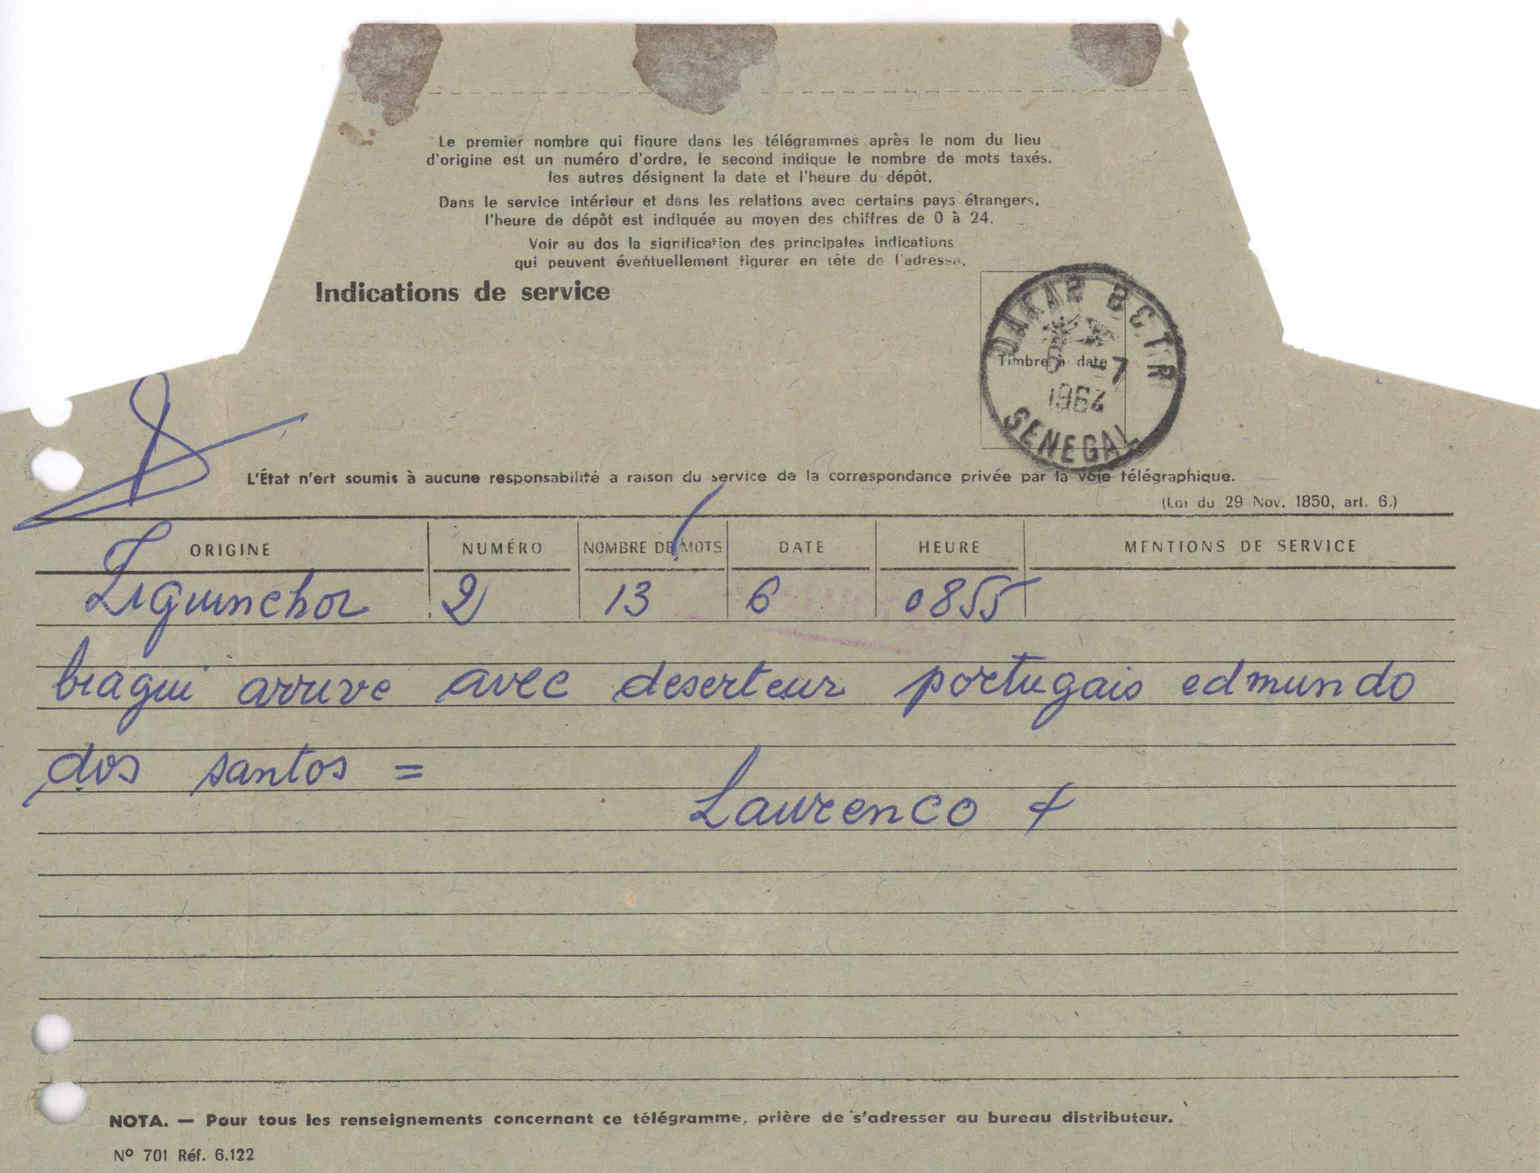 Le premier nombre qui figure dans les télégrammes après le nom du lieu
d'origine est un numéro d'ordre, le second indique le nombre de mots taxés,
les autres désignent la date et l'heure du dépôt.
Dans le service intérieur et dans les relations avec certains pays étrangers,
l'heure de dépôt est indiquée au moyen des chiffres de 0 à 24.
Voir au dos la signification des principales indications
qui peuvent éventuellement figurer en tête de l'adresse.
Indications de service
DAKAR B.C.T.R
Timbre à date
6 -7
1964
SENEGAL
L'État n'ert soumis à aucune responsabilité a raison du service de la correspondance privée par la voie télégraphique.
(Loi du 29 Nov. 1850, art. 6.)
ORIGINE NUMÉRO NOMBRE DE MOTS DATE HEURE MENTIONS DE SERVICE
Ziguinchor 2 13 6 0855
biagui arrive avec deserteur portugais edmundo
dos santos =
Laurenco +
NOTA. — Pour tous les renseignements concernant ce télégramme, prière de s'adresser au bureau distributeur.
Nº 701 Réf. 6.122